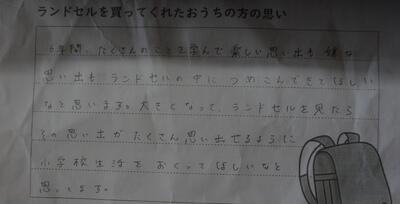 ランドセルを買ってくれたおうちの方の思い
6年間、たくさんのことを学んで楽しい思い出も 嫌な
思い出も ランドセルの中に つめこんできてほしい
なと思います。大きくなって、ランドセルを見たら
その思い出が たくさん思い出せるように
小学校生活を おくってほしいなと
思います。